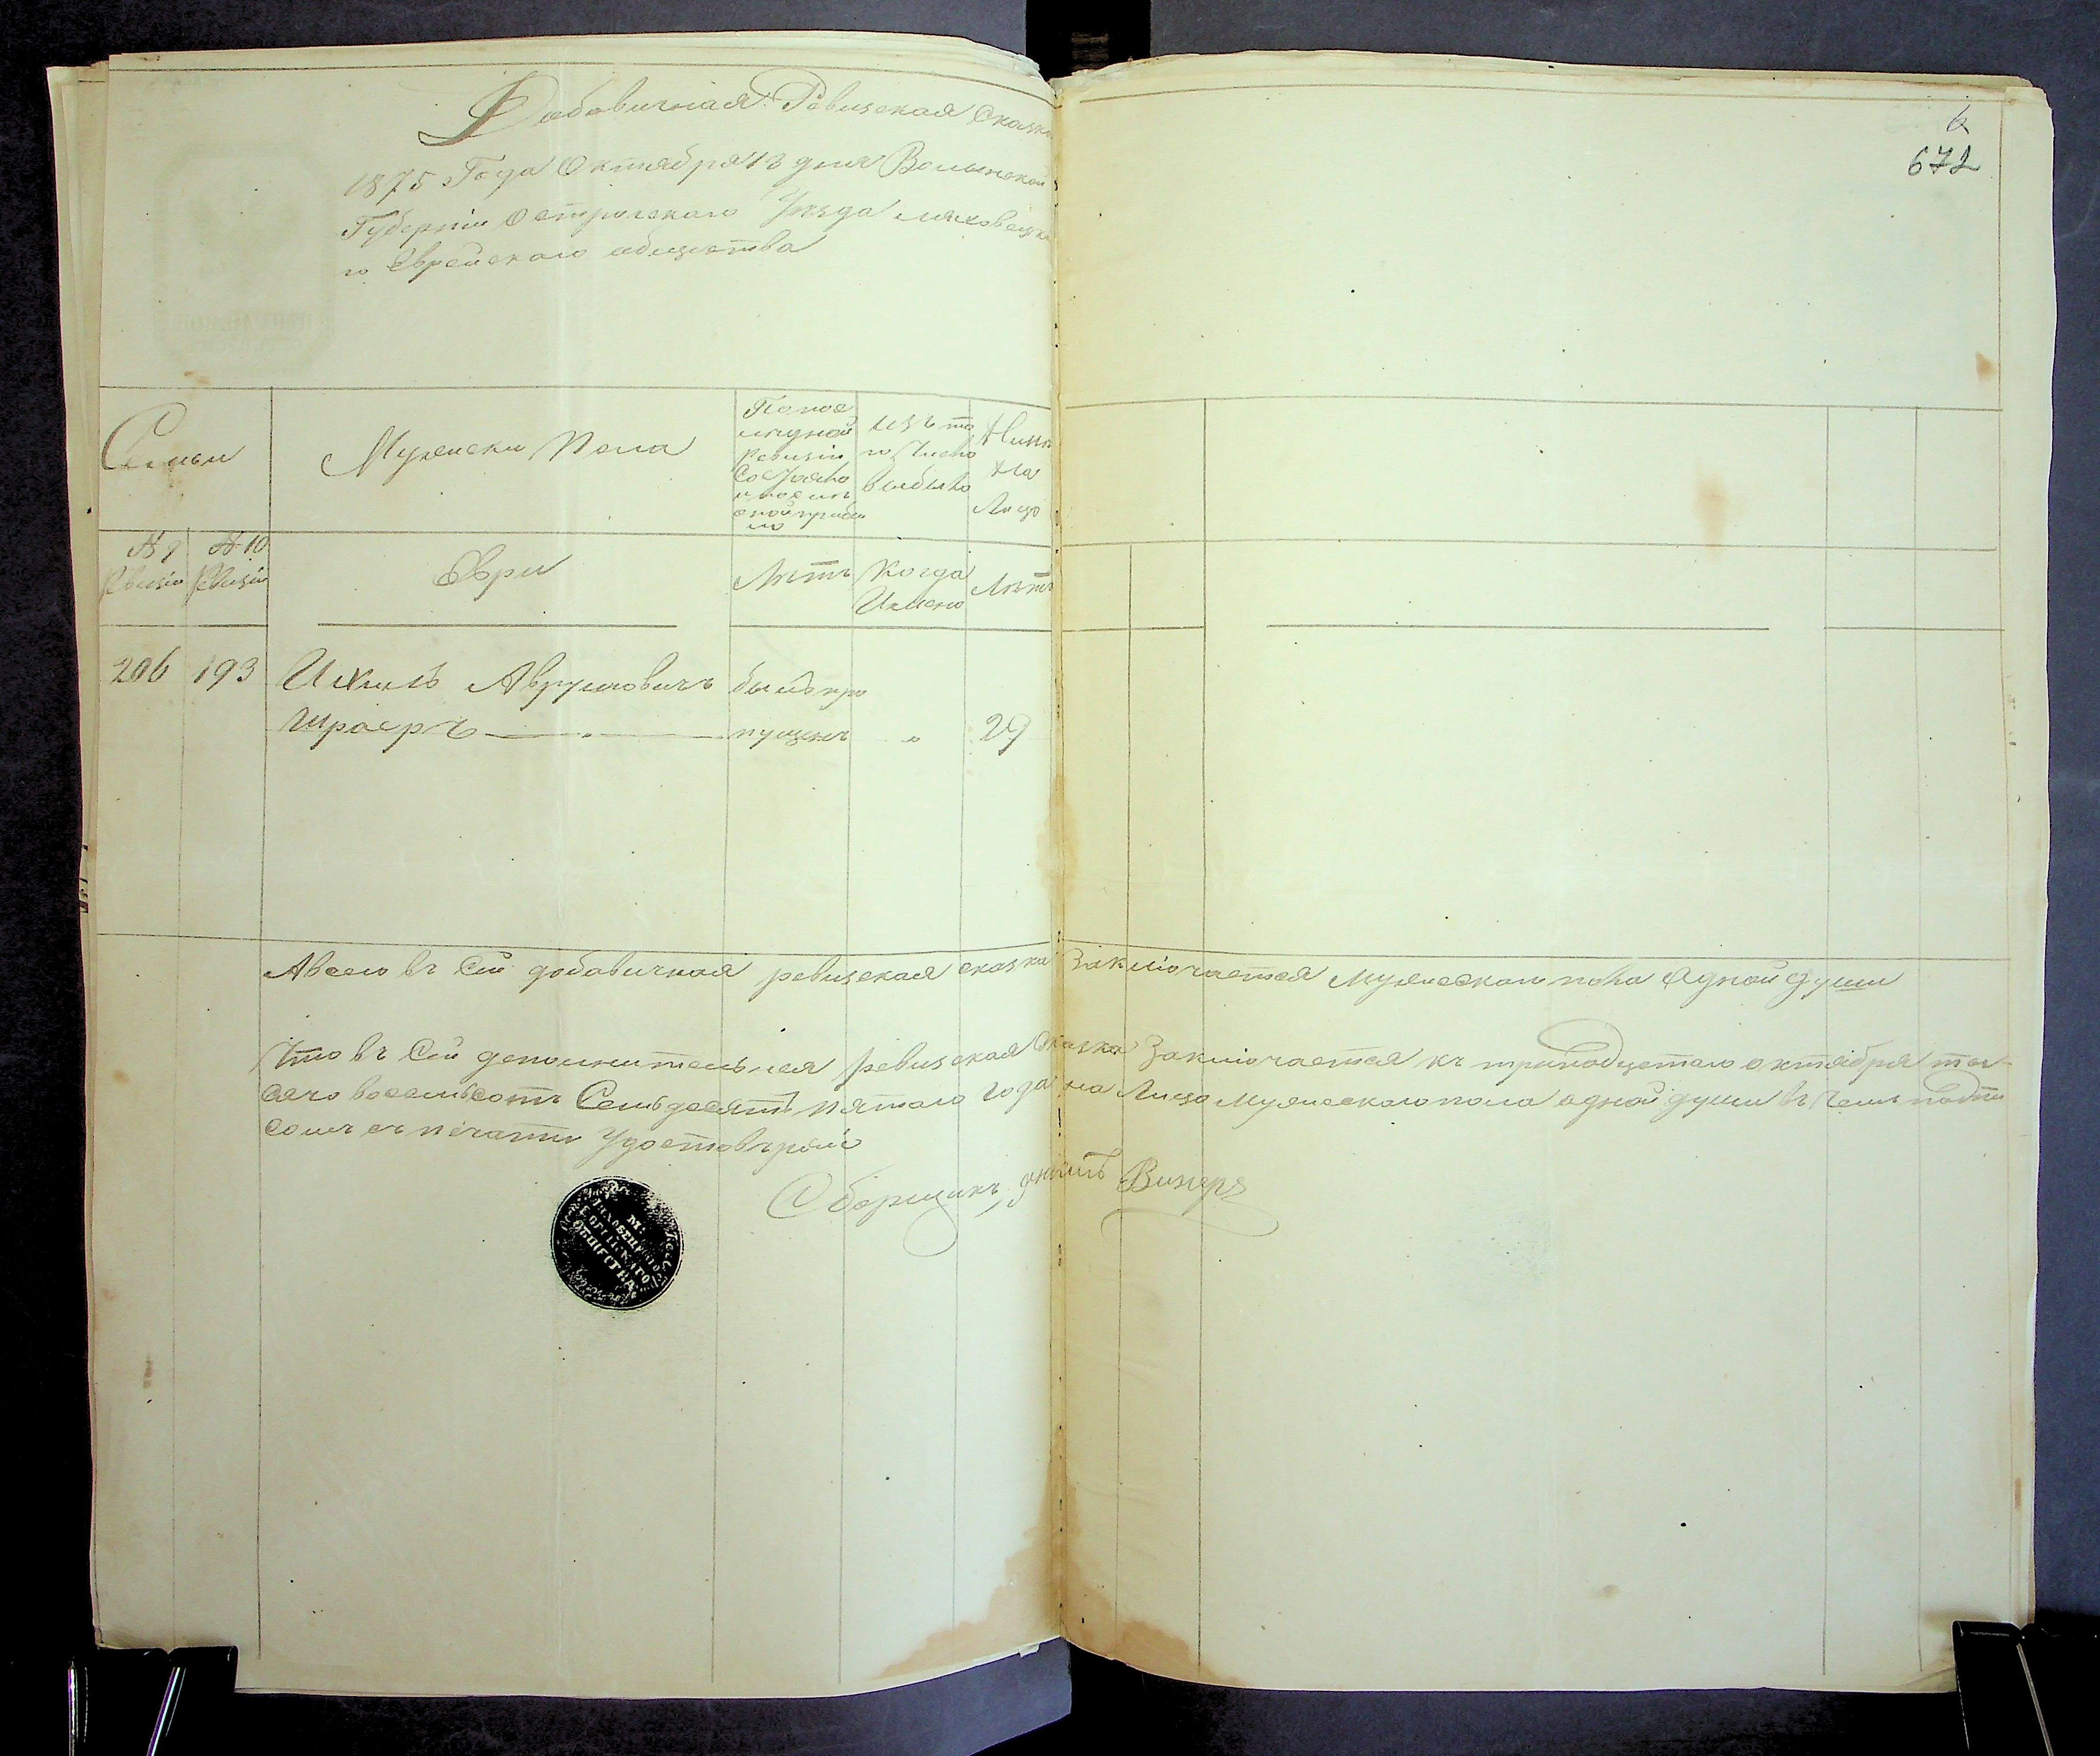 Добавичная Ревизская Сказка
1875 Года Октября 13 дня Волынской
Губерніи Острогскаго Уезда Ляховецка
го Еврейскаго общества
6
672
Семьи
Мужески Пола
По пос
ледной
Ревизіи
Состояло
и после
оной прибы
ло
изъ то
го Число
выбыло
Ныне
на
Лицо
№ 9
Ревизіи
№ 10
Ревизіи
Евреи
Летъ
Когда
Имено
Летъ
206 193 Ихиль Аврумовичъ былъ про
Шраеръ пущенъ " 29
А всего въ Сей добавичная ревизская сказка Заключается Мужескаго пола Одной души
Что въ Сей дополнительная ревизская Сказка Заключается къ тринадцетаго октября ты-
сячо восемьсотъ Семьдесятъ пятаго года на Лицо Мужескаго пола одной души въ Чемъ подпи
сомъ съ печати Удостовъряю
Сборщикъ Винеръ
М:
ЛЯХОВЕЦКАГО
ЕВРЕЙСКАГО
ОБЩЕСТВА